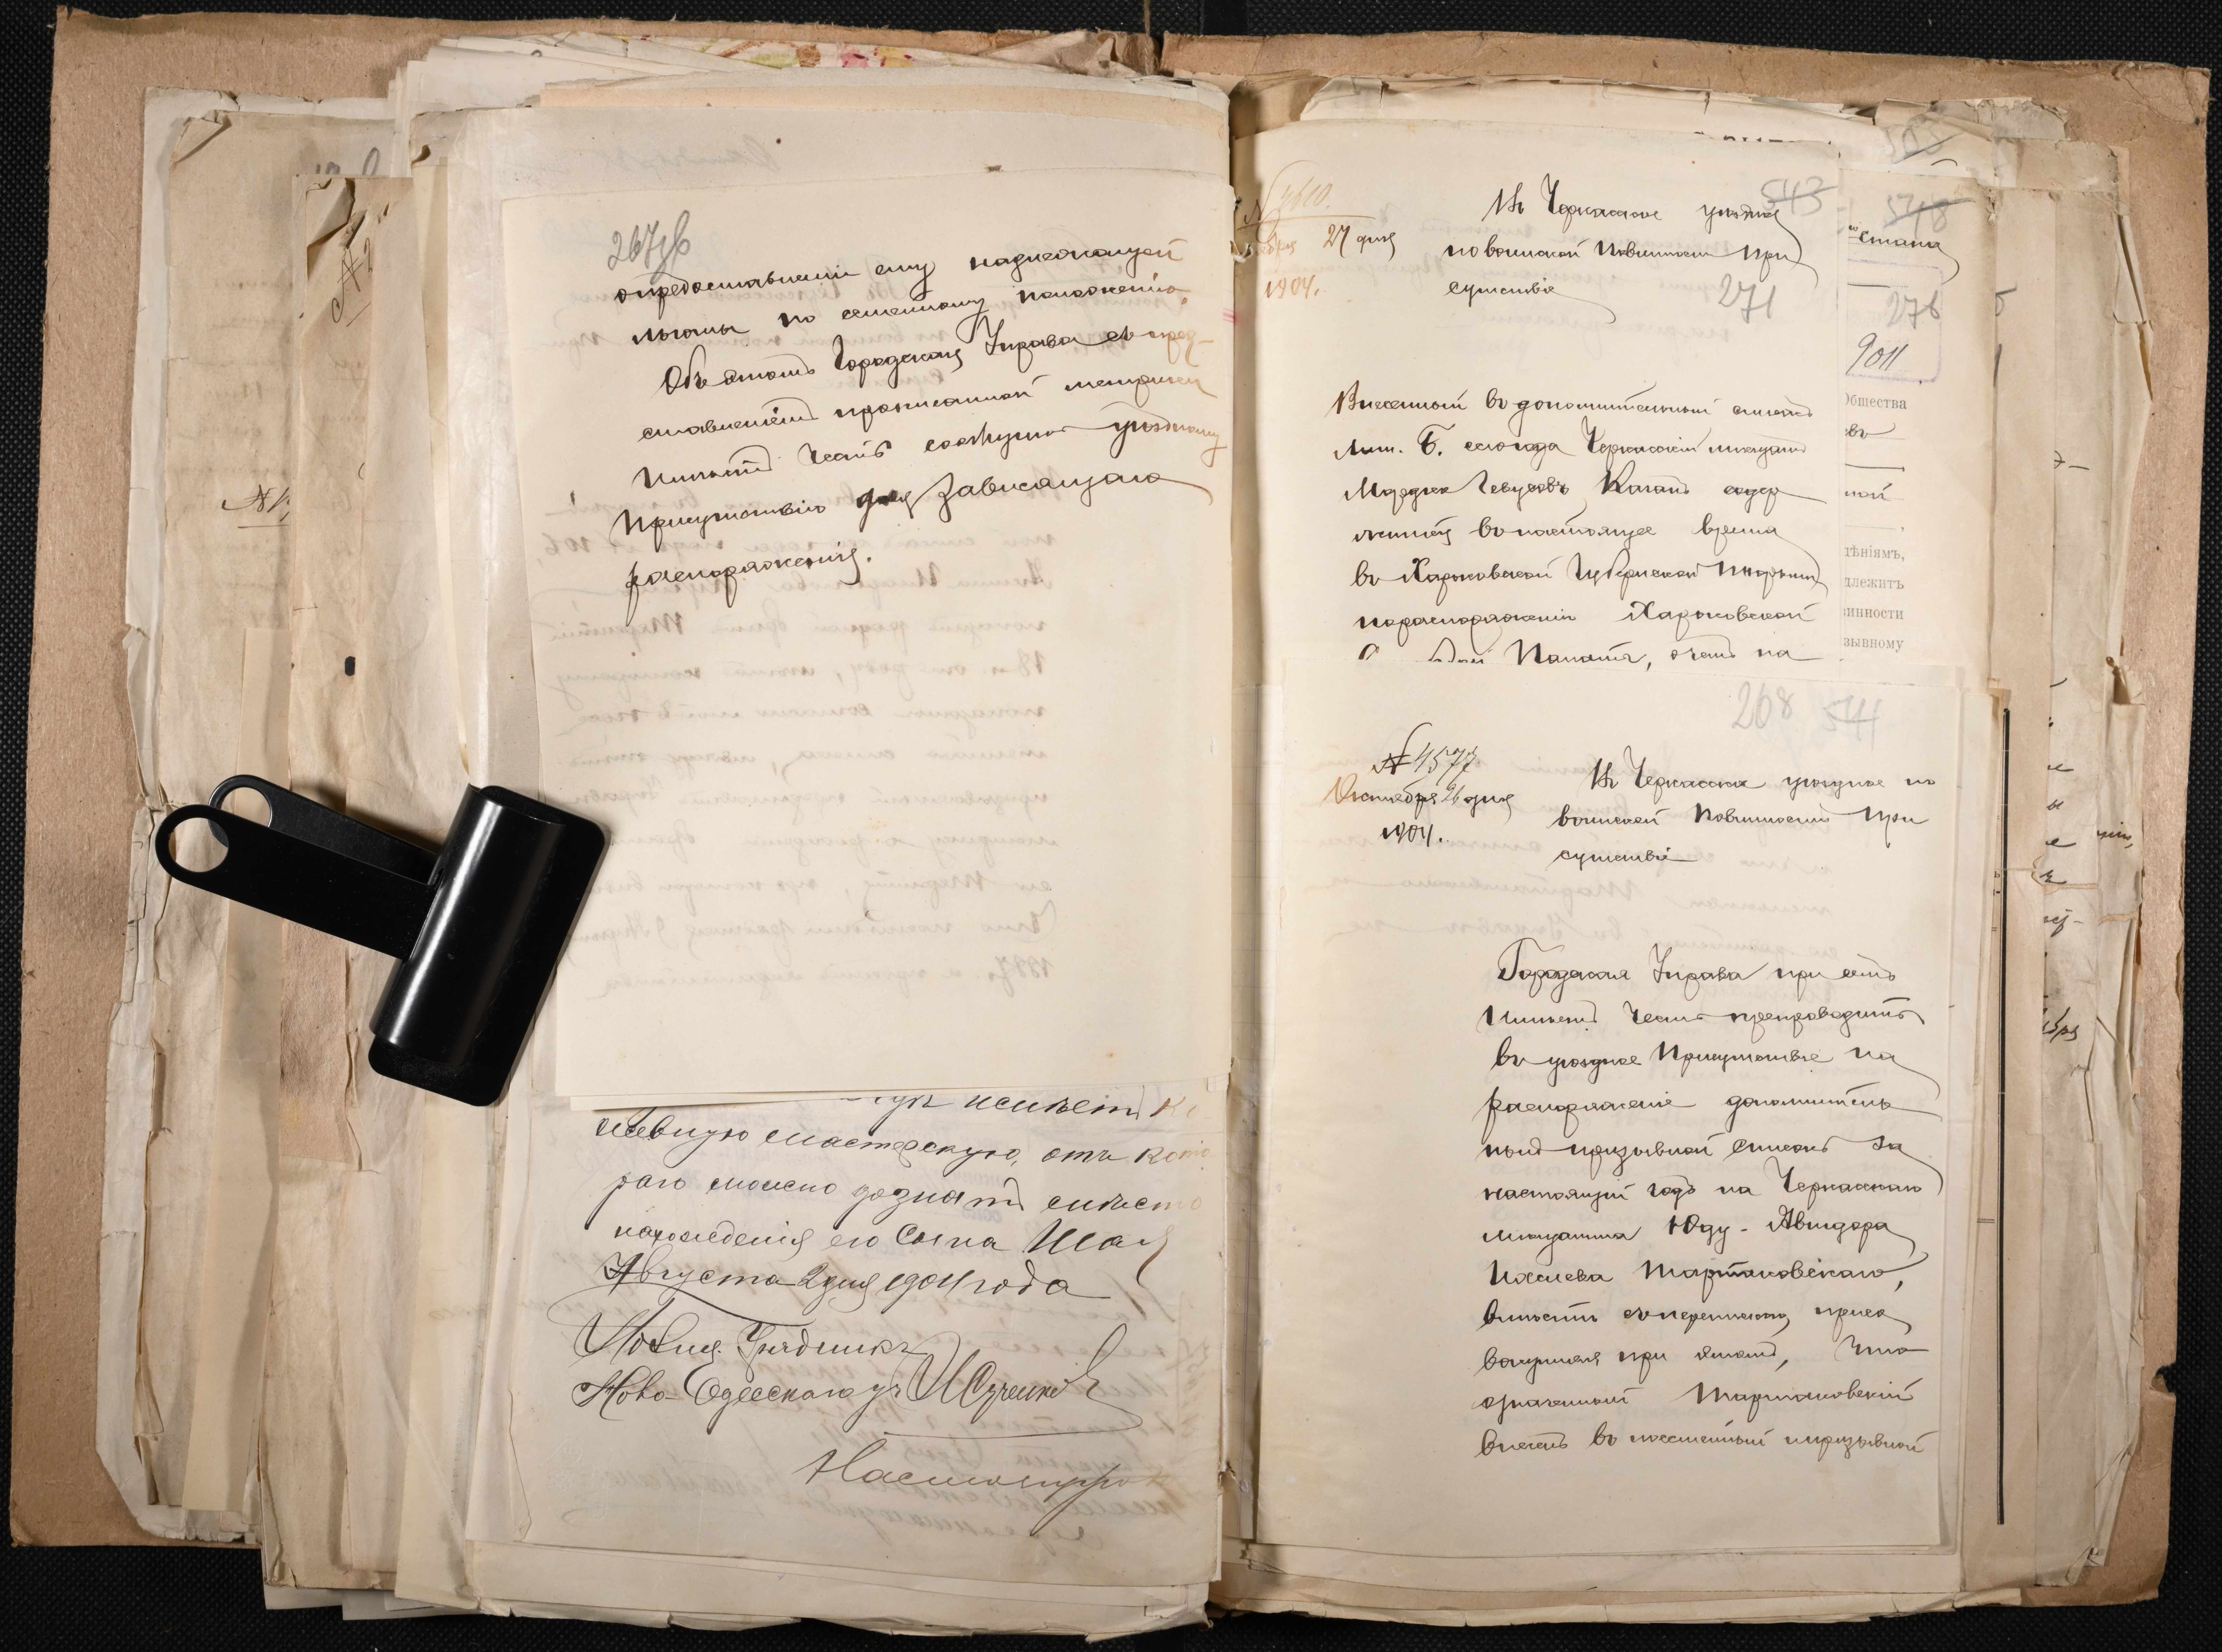 267об
о предоставленіи ему надлежащей
льготы по семейному положенію.
Объ этомъ Городская Управа съ пред-
ставленіемъ прописанной метрики
имѣетъ честь сообщить уѣздному
Присутствію для зависящаго
распоряженія.
мастерскую, отъ кото
раго можно дознать мѣсто
нахожденія его сына Шая
Августа 2 дня 1904 года
Полиц. Урядникъ
Ново-Одесскаго уч.
27 дня
1904.
543
Въ Черкасское уѣздное
по воинской повинности При
сутствіе
271
Внесенный въ дополнительный списокъ
лит. Б. сего года Черкасскій мѣщанинъ
Мордко Каганъ содер
жится въ настоящее время
въ Харьковской Губернской тюрьмѣ
по распоряженію Харьковской
Палаты, о чемъ на
548
276
9011
Общества
ной
тѣніямъ,
длежитъ
инности
зывному
268 544
№ 4577
Октября 26 дня
1904.
Въ Черкасское уѣздное по
воинской повинности При
сутствіе
Городская Управа при семъ
имѣетъ честь препроводить
въ уѣздное Присутствіе на
распоряженіе дополнитель
ный призывной списокъ за
настоящій годъ на Черкасскаго
мѣщанина Юду-Авигдора
Тартаковскаго,
вмѣстѣ съ перепискою, присо
вокупляя при этомъ, что
означенный Тартаковскій
внесенъ въ посемейный и призывной